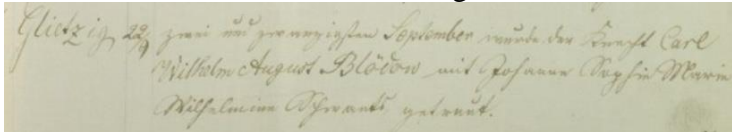 Glietzig 22/9 zwei und zwanzigsten September wurde der Knecht Carl
Wilhelm August Blödow mit Johanne Sophie Marie
Wilhelmine Schwantz getraut.